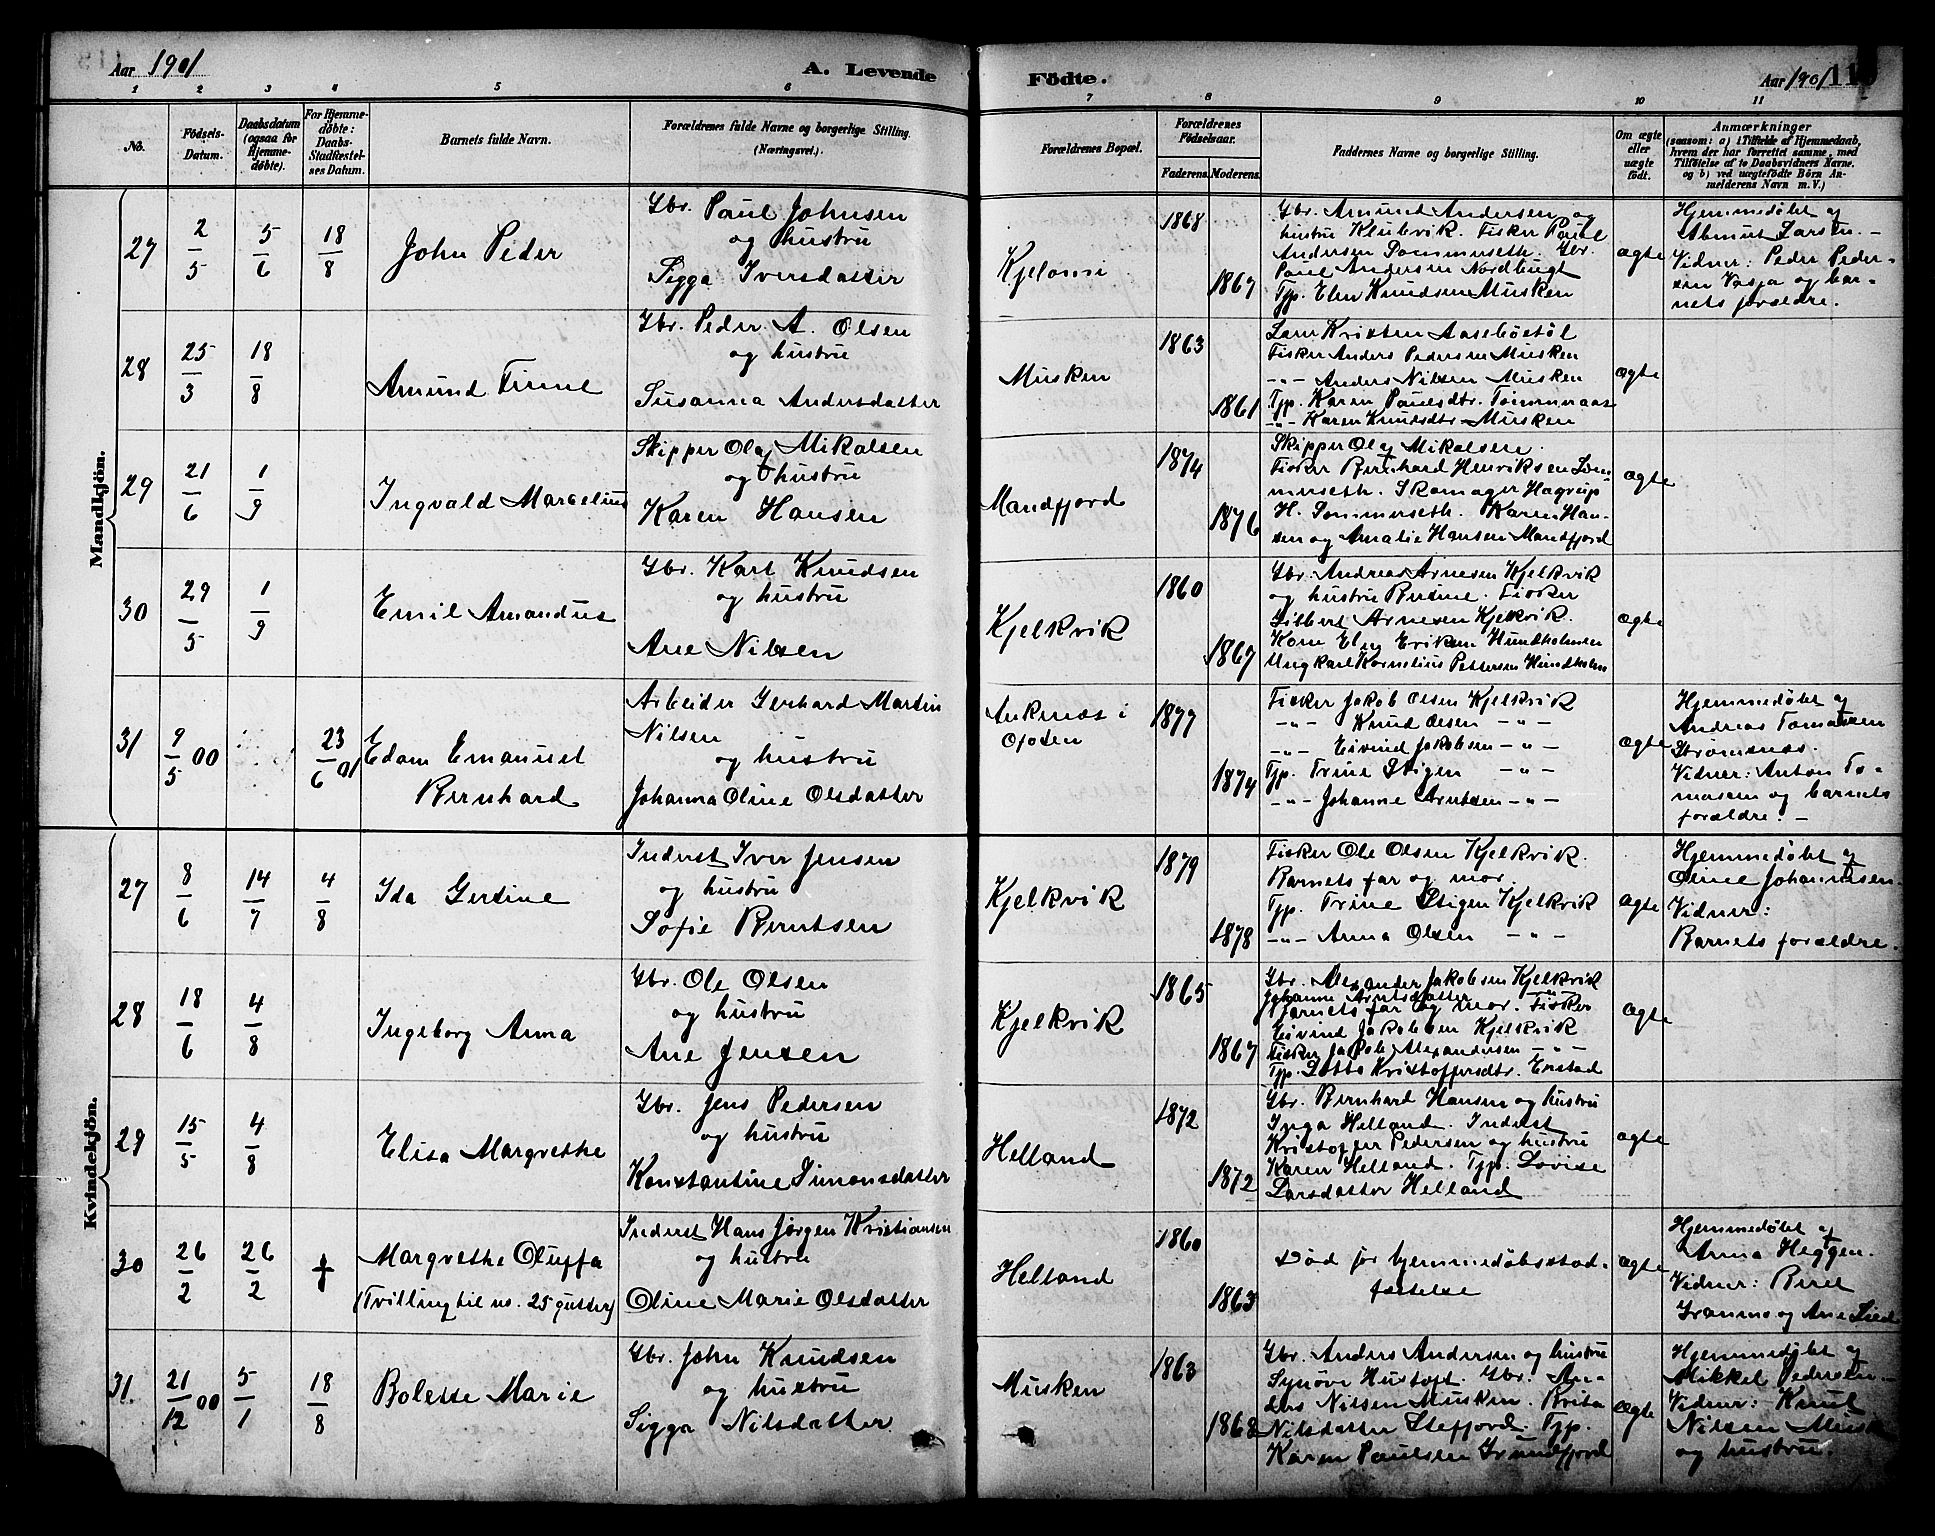 Aar 1901
A. Levende
Födte.
Aar 1901
1 2 3 4 5 6 7 8 9 10 11
No.
Födsels-
Datum.
Daabsdatum
(ogsaa for
Hjemme-
døbte).
For Hjemme-
døbte:
Daabs-
Stadfæstel-
ses Datum.
Barnets fulde Navn.
Forældrenes fulde Navne og borgerlige Stilling.
(Næringsvei.)
Forældrenes Bopæl.
Forældrenes
Födselsaar.
Faderens. Moderens.
Faddernes Navne og borgerlige Stilling.
Om ægte
eller
uægte
født.
Anmærkninger
(saasom: a) i Tilfælde af Hjemmedaab,
hvem der har forrettet samme, med
Tilföielse af to Daabsvidners Navne,
og b) ved uægtefödte Börn An-
melderens Navn m. V.)
Mandkjön.
27
2/5
5/6
18/8
John Peder
Gbr. Paul Johnsen
og hustru
Sigga Iversdatter
Kjelomi
1868
1867
Gbr. Amund Andersen og
hustru Klubvik. Fisker Paul
Andersen Sommerseth. Gbr.
Paul Andersen Nordbugt
Tjp. Elen Knudsen Musken
ægte
Hjemmedøbt af
Abmut Larsen. -
Vidner: Peder Peder-
sen Vasja og bar-
nets forældre.
28
25/3
18/8
Amund Tinne
Gbr. Peder A. Olsen
og hustru
Susanna Andersdatter
Musken
1863
1861
Lam Kristen Aasebøstøl
Fisker Anders Pedersen Musken
-"- Anders Nilsen Musken
Tjp. Karen Paulsdtr. Tømmeraas
-"- Karen Knutsdtr Musken
ægte
29
21/6
1/9
Ingvald Marselius
Skipper Olaf Mikalsen
og hustru
Karen Hansen
Mandfjord
1874
1876
Skipper Olaf Mikalsen.
Fisker Bernhard Henriksen Som-
merseth. Skomager Hagrup
H. Sommerseth. Karen Han-
sen og Amalie Hansen Mandfjord
ægte
30
29/5
1/9
Emil Amandus
Gbr. Karl Knudsen
og hustru
Ane Nilsen
Kjelkvik
1860
1867
Gbr. Andreas Arnesen Kjelkvik
og hustru Bertine. Fisker
Dilbert Arnesen Kjelkvik.
Kone Elen Eriksen Hundholmen
Ungkarl Kornelius Pettersen Hundholm
ægte
31
9/5 00
23/6 01
Edam Emanuel
Bernhard
Arbeider Gerhard Martin
Nilsen
og hustru
Johanna Oline Olsdatter
Ankenæs i
Ofoten
1877
1874
Fisker Jakob Olsen Kjelkvik
-"- Knud Olsen -"-
-"- Eivind Jakobsen -"-
Tjp. Trine Stigen -"-
-"- Johanne Arntsen -"-
ægte
Hjemmedøbt af
Andreas Tomassen
Strømsnæs.
Vidner: Anton To-
masen og barnets
forældre. -
Kvindekjön.
27
8/6
14/7
4/8
Ida Gertine
Inderst Iver Jensen
og hustru
Sofie Berntsen
Kjelkvik
1879
1878
Fisker Ole Olsen Kjelkvik.
Barnets far og mor.
Tjp. Trine Stigen Kjelkvik
-"- Anna Olsen -"-
ægte
Hjemmedøbt af
Oline Johannesen.
Vidner:
Barnets forældre.
28
18/6
4/8
Ingeborg Anna
Gbr. Ole Olsen
og hustru
Ane Jensen
Kjelkvik
1865
1867
Gbr. Alexander Jakobsen Kjelkvik
Johanne Arntsdatter -"-
Barnets far og mor. Fisker
Eivind Jakobsen Kjelkvik
Fisker Jakob Alexandersen -"-
Tjp. Lotte Kristoffersdtr. Erstad
ægte
29
15/5
4/8
Elisa Margrethe
Gbr. Jens Pedersen
og hustru
Konstantine Simonsdatter
Helland
1872
1872
Gbr. Bernhard Hansen og hustru
Inga Helland. Inderst
Kristoffer Pedersen og hustru
Karen Helland. Tjp. Lovise
Larsdatter Helland
ægte
30
26/2
26/2
†
Margrethe Oluffa
(Tvilling til no. 25 gutter)
Inderst Hans Jørgen Kristiansen
og hustru
Oline Marie Olsdatter
Helland
1860
1863
Død før hjemmedøbsstad-
fæstelse
ægte
Hjemmedøbt af
Anna Heggen.
Vidner: Beret
Gramme og Ane Lied
31.
21/12 00
5/1
18/8
Bolette Marie
Gbr. John Knudsen
og hustru
Sigga Nilsdatter
Musken
1863
1868
Gbr. Anders Andersen og hustru
Synøve Hustoft. Gbr. An-
ders Nilsen Musken. Brita
Nilsdatter Stefjord. Tjp.
Karen Paulsen Grundfjord
ægte
Hjemmedøbt af
Mikkel Pedersen. -
Vidner: Knut
Nilsen Musk
og hustru.